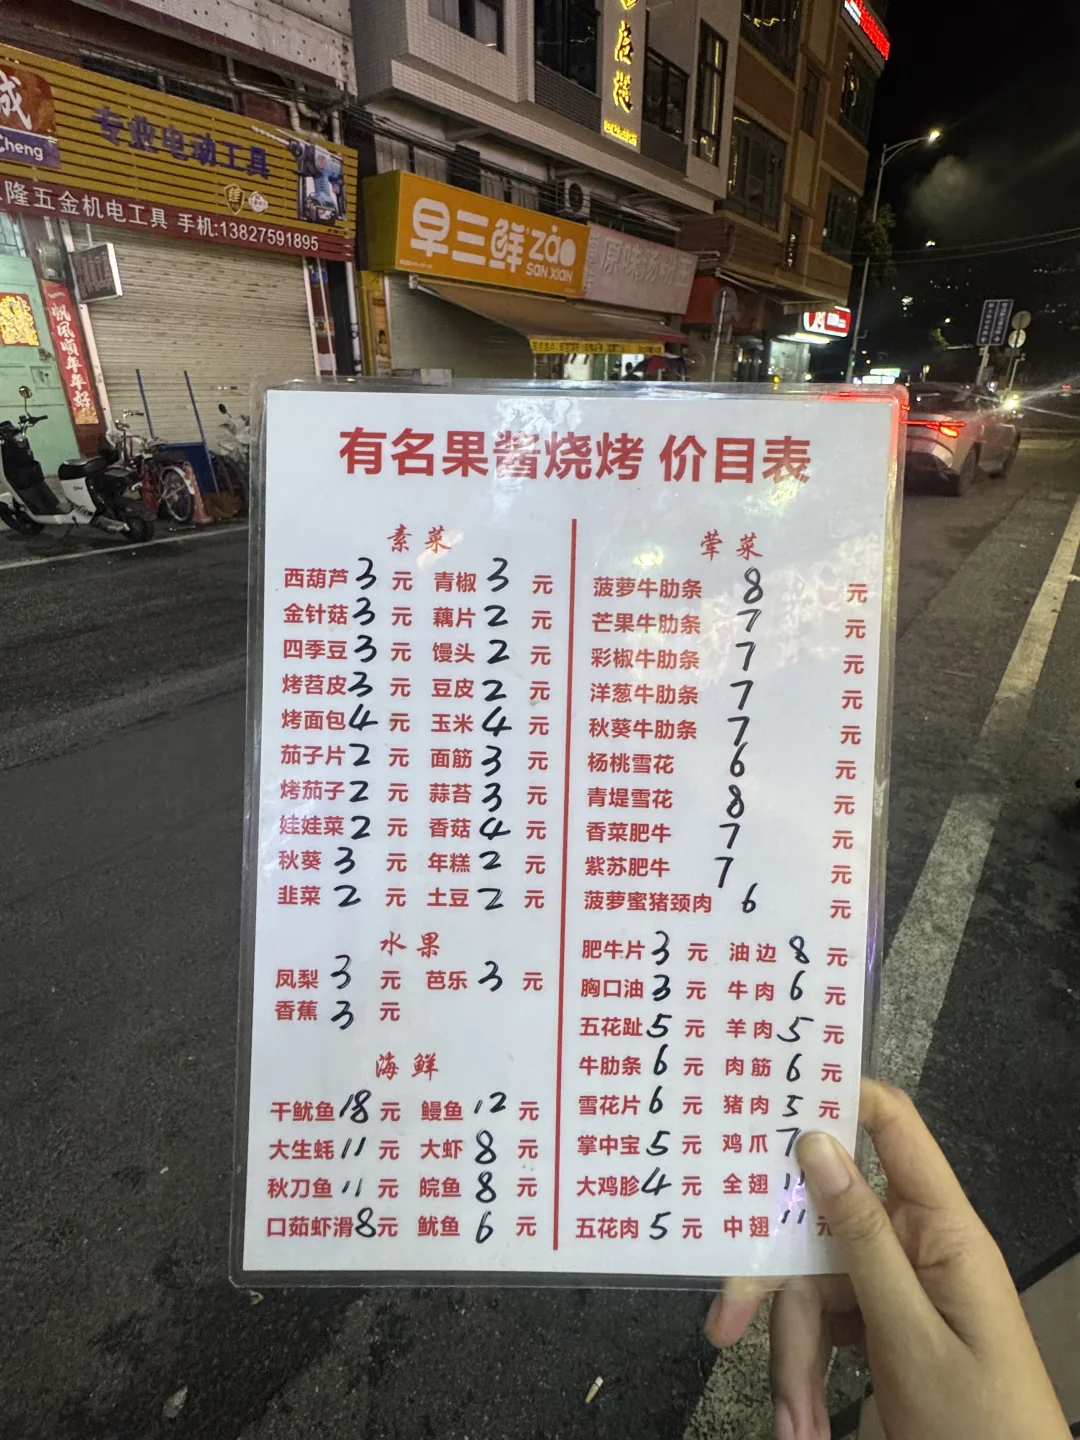 成
Cheng
专业电动工具
隆五金机电工具 手机:13827591895
一帆风顺年年好
早三鲜 zǎo
SAN XIAN
原味汤粉王
有名果酱烧烤 价目表
素菜
西葫芦 3 元 青椒 3 元
金针菇 3 元 藕片 2 元
四季豆 3 元 馒头 2 元
烤苕皮 3 元 豆皮 2 元
烤面包 4 元 玉米 4 元
茄子片 2 元 面筋 3 元
烤茄子 2 元 蒜苔 3 元
娃娃菜 2 元 香菇 4 元
秋葵 3 元 年糕 2 元
韭菜 2 元 土豆 2 元
水果
凤梨 3 元 芭乐 3 元
香蕉 3 元
海鲜
干鱿鱼 18 元 鳗鱼 12 元
大生蚝 11 元 大虾 8 元
秋刀鱼 11 元 皖鱼 8 元
口茹虾滑 8 元 鱿鱼 6 元
荤菜
菠萝牛肋条 8 元
芒果牛肋条 7 元
彩椒牛肋条 7 元
洋葱牛肋条 7 元
秋葵牛肋条 7 元
杨桃雪花 6 元
青堤雪花 8 元
香菜肥牛 7 元
紫苏肥牛 7 元
菠萝蜜猪颈肉 6 元
肥牛片 3 元 油边 8 元
胸口油 3 元 牛肉 6 元
五花趾 5 元 羊肉 5 元
牛肋条 6 元 肉筋 6 元
雪花片 6 元 猪肉 5 元
掌中宝 5 元 鸡爪 7
大鸡胗 4 元 全翅 11
五花肉 5 元 中翅 11 元